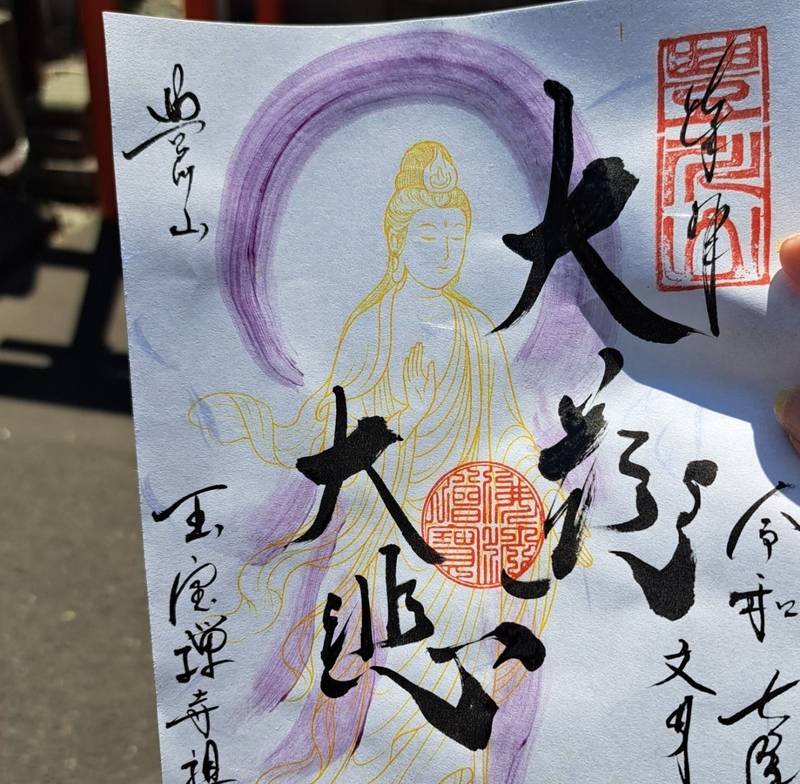 奉拝
大慈
大悲
佛法僧寶
令和七
文月
山
玉宝禅寺祖